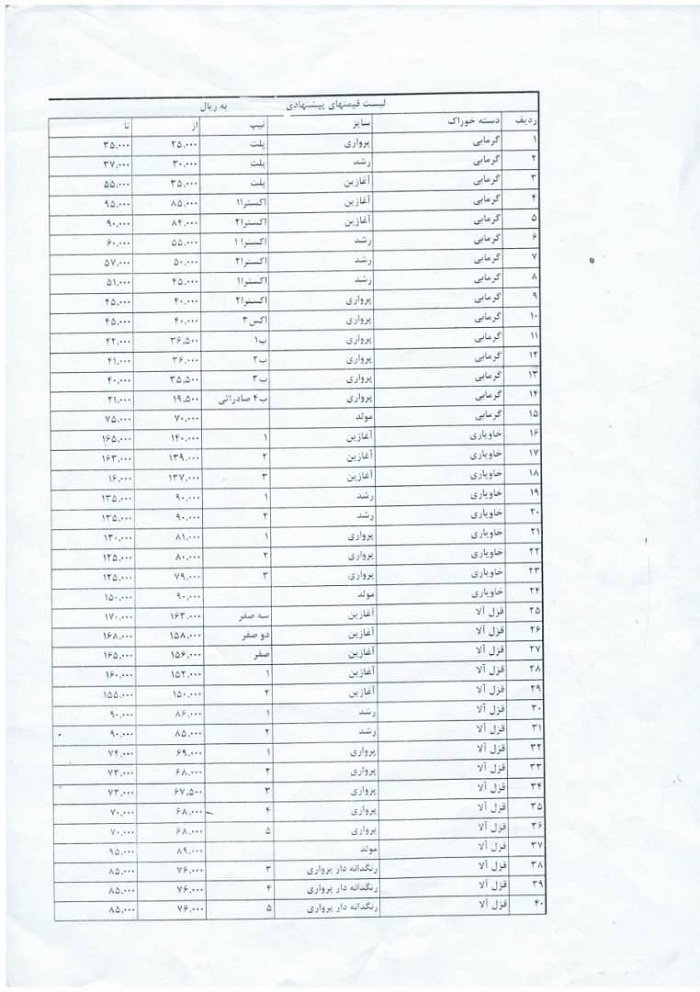 لیست قیمتهای پیشنهادی به ریال
ردیف دسته خوراک سایز تیپ از تا
۱ گرمابی پرواری پلت ۲۵,۰۰۰ ۳۵,۰۰۰
۲ گرمابی رشد پلت ۳۰,۰۰۰ ۳۷,۰۰۰
۳ گرمابی آغازین پلت ۳۵,۰۰۰ ۵۵,۰۰۰
۴ گرمابی آغازین اکسترا۱ ۸۵,۰۰۰ ۹۵,۰۰۰
۵ گرمابی آغازین اکسترا۲ ۸۴,۰۰۰ ۹۰,۰۰۰
۶ گرمابی رشد اکسترا ۱ ۵۵,۰۰۰ ۶۰,۰۰۰
۷ گرمابی رشد اکسترا۲ ۵۰,۰۰۰ ۵۷,۰۰۰
۸ گرمابی رشد اکسترا۱ ۴۵,۰۰۰ ۵۱,۰۰۰
۹ گرمابی پرواری اکسترا۲ ۴۰,۰۰۰ ۴۵,۰۰۰
۱۰ گرمابی پرواری اکس۳ ۴۰,۰۰۰ ۴۵,۰۰۰
۱۱ گرمابی پرواری ب۱ ۳۶,۵۰۰ ۴۲,۰۰۰
۱۲ گرمابی پرواری ب۲ ۳۶,۰۰۰ ۴۱,۰۰۰
۱۳ گرمابی پرواری ب۳ ۳۵,۵۰۰ ۴۰,۰۰۰
۱۴ گرمابی پرواری ب۴ صادراتی ۱۹,۵۰۰ ۲۱,۰۰۰
۱۵ گرمابی مولد ۷۰,۰۰۰ ۷۵,۰۰۰
۱۶ خاویاری آغازین ۱ ۱۴۰,۰۰۰ ۱۶۵,۰۰۰
۱۷ خاویاری آغازین ۲ ۱۳۹,۰۰۰ ۱۶۳,۰۰۰
۱۸ خاویاری آغازین ۳ ۱۳۷,۰۰۰ ۱۶,۰۰۰
۱۹ خاویاری رشد ۱ ۹۰,۰۰۰ ۱۳۵,۰۰۰
۲۰ خاویاری رشد ۲ ۹۰,۰۰۰ ۱۳۵,۰۰۰
۲۱ خاویاری پرواری ۱ ۸۱,۰۰۰ ۱۳۰,۰۰۰
۲۲ خاویاری پرواری ۲ ۸۰,۰۰۰ ۱۲۵,۰۰۰
۲۳ خاویاری پرواری ۳ ۷۹,۰۰۰ ۱۲۵,۰۰۰
۲۴ خاویاری مولد ۹۰,۰۰۰ ۱۵۰,۰۰۰
۲۵ قزل آلا آغازین سه صفر ۱۶۳,۰۰۰ ۱۷۰,۰۰۰
۲۶ قزل آلا آغازین دو صفر ۱۵۸,۰۰۰ ۱۶۸,۰۰۰
۲۷ قزل آلا آغازین صفر ۱۵۶,۰۰۰ ۱۶۵,۰۰۰
۲۸ قزل آلا آغازین ۱ ۱۵۲,۰۰۰ ۱۶۰,۰۰۰
۲۹ قزل آلا آغازین ۲ ۱۵۰,۰۰۰ ۱۵۵,۰۰۰
۳۰ قزل آلا رشد ۱ ۸۶,۰۰۰ ۹۰,۰۰۰
۳۱ قزل آلا رشد ۲ ۸۵,۰۰۰ ۹۰,۰۰۰
۳۲ قزل آلا پرواری ۱ ۶۹,۰۰۰ ۷۴,۰۰۰
۳۳ قزل آلا پرواری ۲ ۶۸,۰۰۰ ۷۳,۰۰۰
۳۴ قزل آلا پرواری ۳ ۶۷,۵۰۰ ۷۳,۰۰۰
۳۵ قزل آلا پرواری ۴ ۶۸,۰۰۰ ۷۰,۰۰۰
۳۶ قزل آلا پرواری ۵ ۶۸,۰۰۰ ۷۰,۰۰۰
۳۷ قزل آلا مولد ۸۹,۰۰۰ ۹۵,۰۰۰
۳۸ قزل آلا رنگدانه دار پرواری ۳ ۷۶,۰۰۰ ۸۵,۰۰۰
۳۹ قزل آلا رنگدانه دار پرواری ۴ ۷۶,۰۰۰ ۸۵,۰۰۰
۴۰ قزل آلا رنگدانه دار پرواری ۵ ۷۶,۰۰۰ ۸۵,۰۰۰